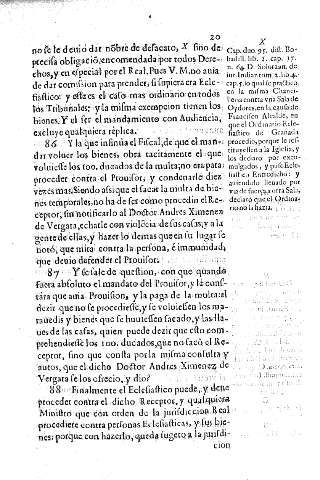 20
no se le deuio dar nõbre de desacato, X sino de
precisa obligació, encomendada por todos Dere-
chos, y en especial por el Real. Pues V. M. no auia
de dar comission para prender, si supiera era Ecle-
siastico: y este es el caso mas ordinario en todos
los Tribunales; y la misma exempcion tienen los
bienes. Y el ser el mandamiento con Audiencia,
excluye qualquiera replica.
86 Y la que insinua el Fiscal, de que el man-
dar voluer los bienes, obra tacitamente el que
voluiesse los 100. ducados de la multa; no era para
proceder contra el Prouisor, y condenarle diez
vezes mas, Siendo assi que el sacar la multa de bie-
nes temporales, no ha de ser como procedio el Re-
ceptor, sin notificarlo al Doctor Andres Ximenez
de Vergara, echarle con violécia de sus casas; y a la
gente de ellas, y hazer lo demas que en su lugar se
notó, que mita contra la persona, é immunidad,
que deuio defender el Prouisor.
87 Y se sale de question, con que quando
fuera absoluto el mandato del Prouisor, y le cons-
tára que auia Prouision, y la paga de la multa: al
dezir que no se procediesse, y se voluiessen los ma-
rauedis y bienes que se huuiessen sacado, y las lla-
ues de las casas, quien puede dezir que esto com-
prehendiesse los 100. ducados, que no sacó el Re-
ceptor, sino que consta por la misma consulta y
autos, que el dicho Doctor Andres Ximenez de
Vergara se los ofrecio, y dio?
88 Finalmente el Eclesiastico puede, y deue
proceder contra el dicho Receptor, y qualquiera
Ministro que con orden de la jurisdicion Real
procediere contra personas Eclesiasticas, y sus bie-
nes: porque con hazerlo, queda sugeto a la jurisdi-
cion
X
Cap. duo 95. dist. Bo-
badill. lib. 2. cap. 17.
n. 64. D. Solorzan. de
iur. Indiar. tom. 2. lib. 4.
cap. 3. lo qual se practicó
en la misma Chanc-
illeria contra vna Sala de
Oydores, en la causa de
Francisco Alcalde, en
que el Ordinario Ecle-
siastico de Granada
procedio, porque le res-
tituyessen a la Iglesia, y
los declaró por ex-
comulgados, y puso Ecle-
siastico Entredicho: y
auiendolo lleuado por
via de fuerça, a otra Sala,
declaró que el Ordina-
rio no la hazia.